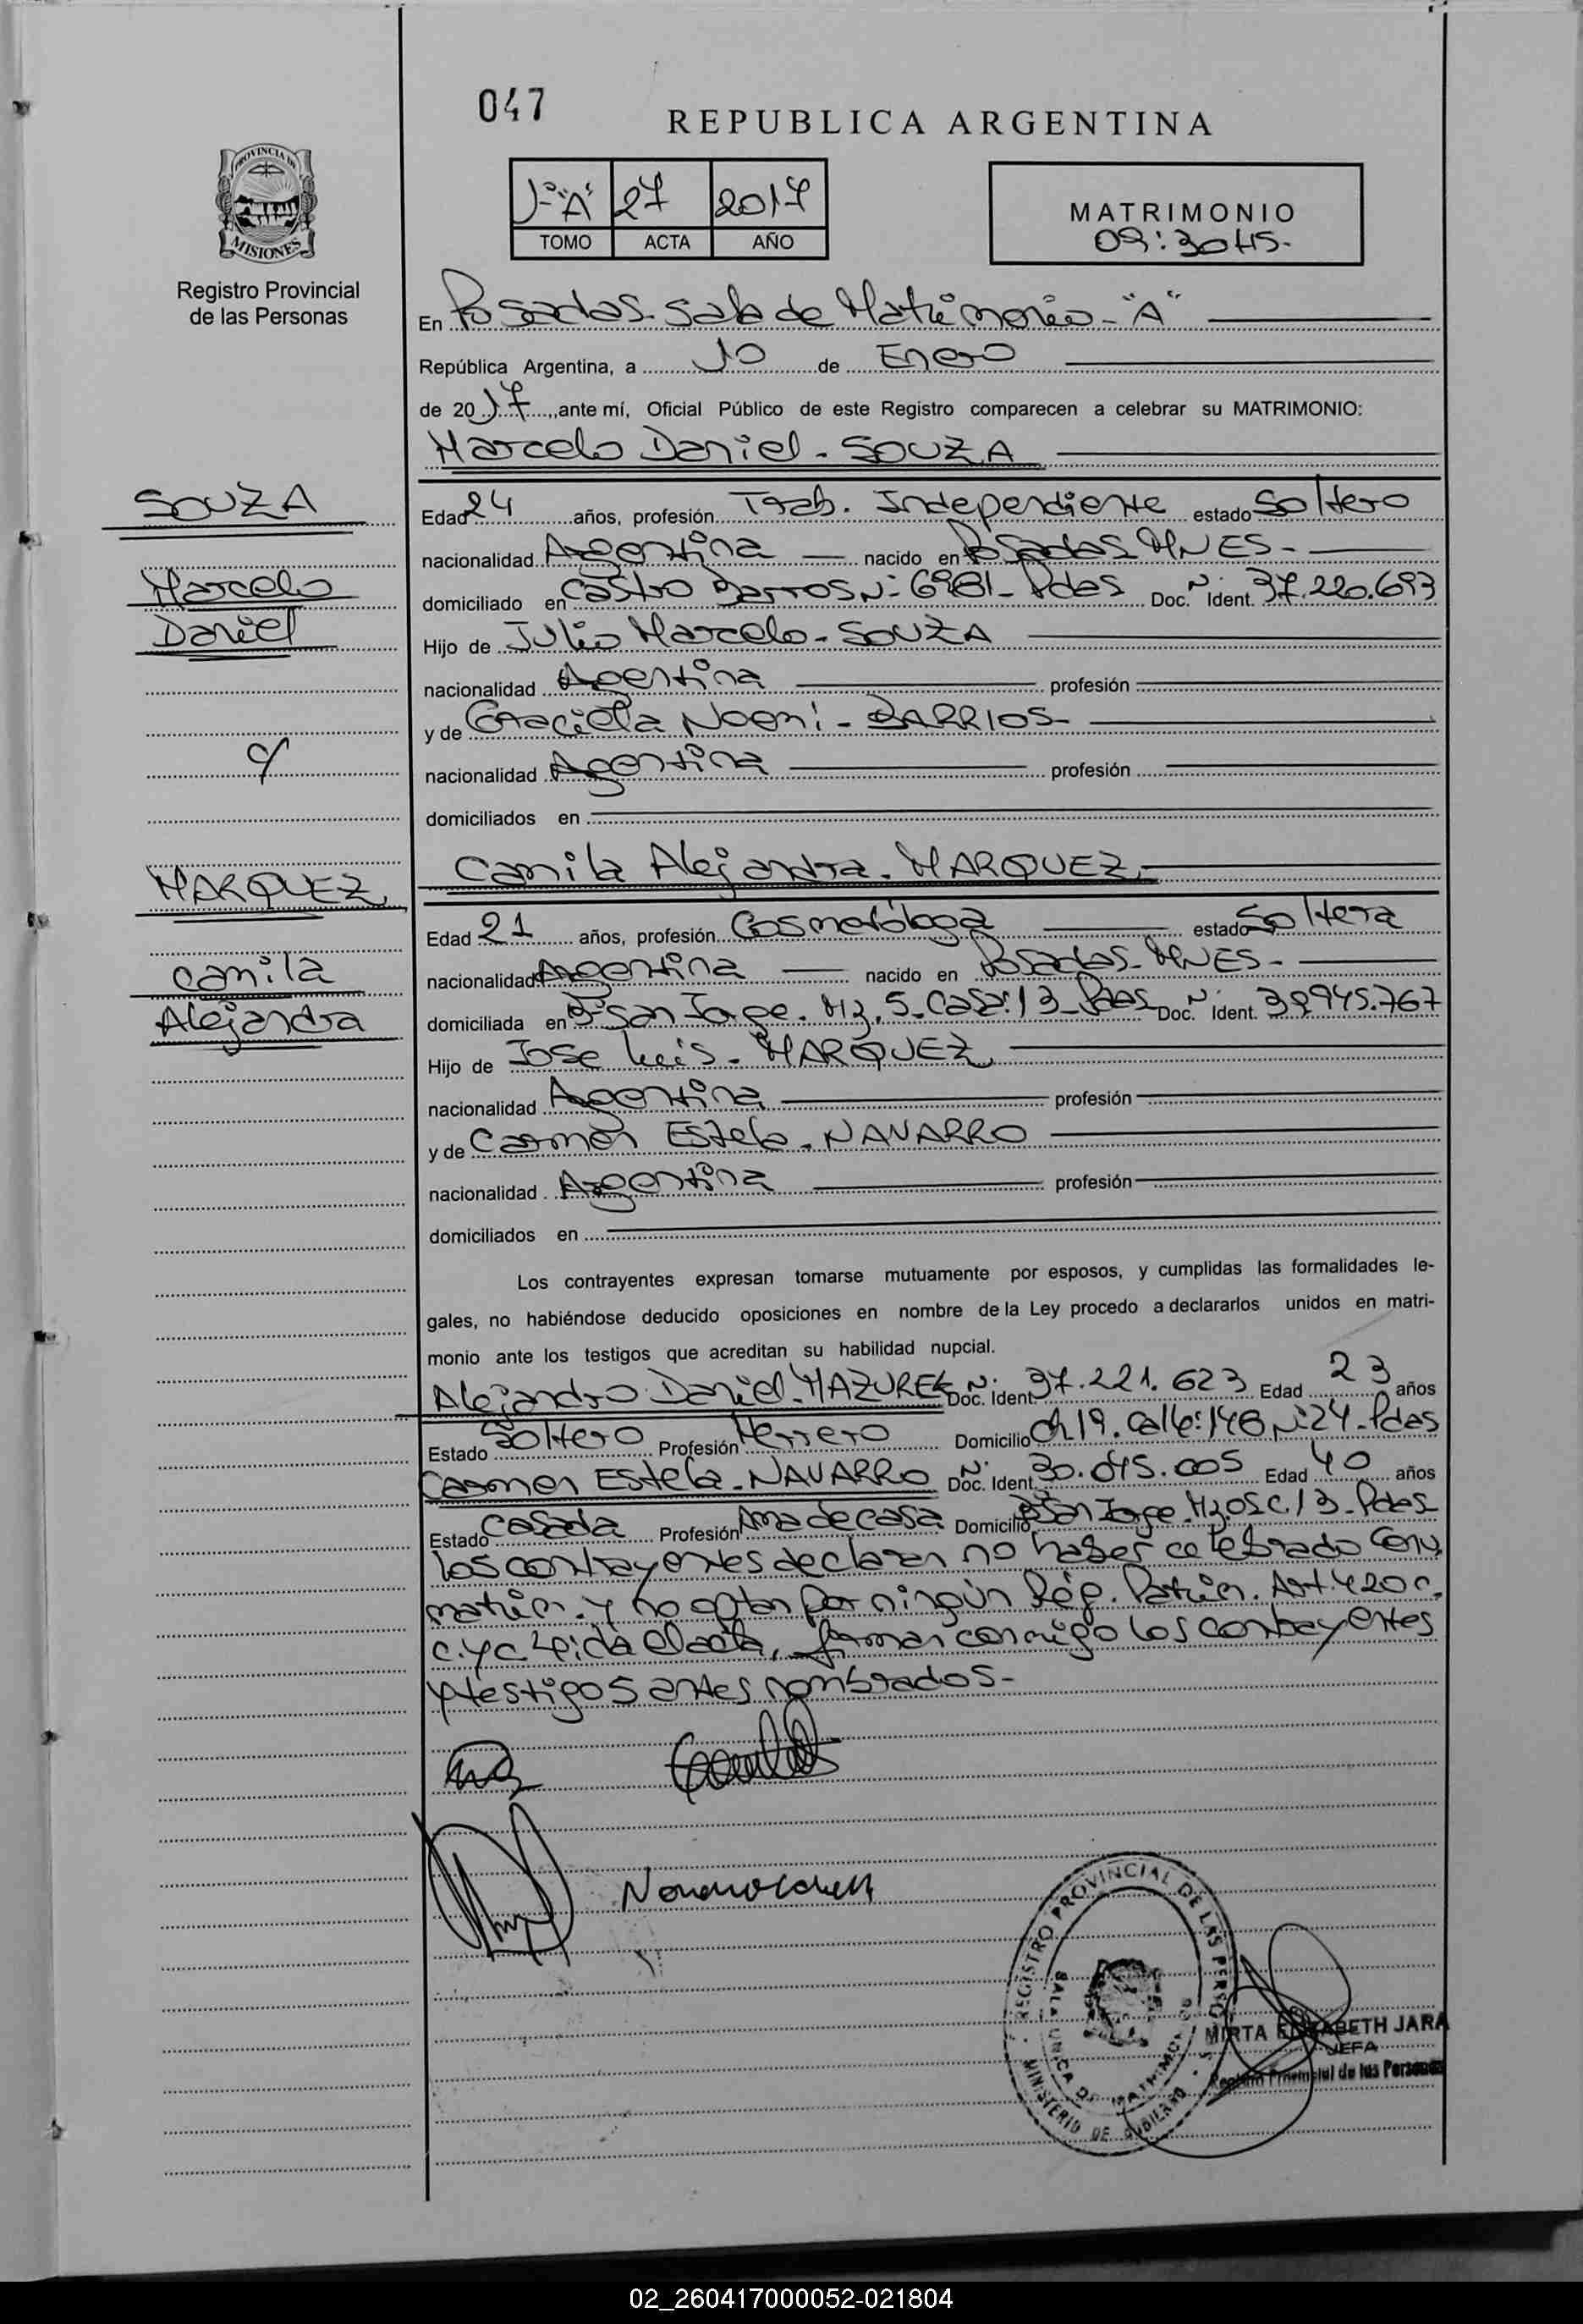 047
REPUBLICA ARGENTINA
PROVINCIA DE
MISIONES
Registro Provincial
de las Personas
1º "A" 27 2017
TOMO ACTA AÑO
MATRIMONIO
09:30 HS-
En Posadas-Sala de Matrimonio-"A"
República Argentina, a 10 de Enero
de 2017, ante mí, Oficial Público de este Registro comparecen a celebrar su MATRIMONIO:
Marcelo Daniel-SOUZA
SOUZA
Marcelo
Daniel
c/
MARQUEZ
Camila
Alejandra
Edad 24 años, profesión Trab. Independiente estado Soltero
nacionalidad Argentina nacido en Posadas MNES-
domiciliado en Castro Barros Nº 6981-Pdas Doc. Nº Ident. 37.220.693
Hijo de Julio Marcelo-SOUZA
nacionalidad Argentina profesión
y de Graciela Noemi-BARRIOS-
nacionalidad Argentina profesión
domiciliados en
Camila Alejandra-MARQUEZ
Edad 21 años, profesión Cosmetóloga estado Soltera
nacionalidad Argentina nacido en Posadas-MNES-
domiciliada en Bº San Jorge. Mz. 5-Casa:13-Pdas Doc. Nº Ident. 38945.767
Hijo de Jose Luis-MARQUEZ
nacionalidad Argentina profesión
y de Carmen Estela-NAVARRO
nacionalidad Argentina profesión
domiciliados en
Los contrayentes expresan tomarse mutuamente por esposos, y cumplidas las formalidades le-
gales, no habiéndose deducido oposiciones en nombre de la Ley procedo a declararlos unidos en matri-
monio ante los testigos que acreditan su habilidad nupcial.
Alejandro Daniel-MAZUREK Doc. Nº Ident. 37.221.623 Edad 23 años
Estado Soltero Profesión Herrero Domicilio Ch19. Calle:146 Nº24-Pdas
Carmen Estela-NAVARRO Doc. Nº Ident. 30.045.005 Edad 40 años
Estado Casada Profesión Ama de casa Domicilio Bº San Jorge-Mz.05C/13-Pdas-
los contrayentes declaran no haber celebrado Conv
matrim. y no optan por ningún Rég. Patrim. Art.420 C.
C.y C. Leida el acta, firman conmigo los contrayentes
y testigos antes nombrados-
REGISTRO PROVINCIAL DE LAS PERSONAS
SALA UNICA DE MATRIMONIO
MINISTERIO DE GOBIERNO
MIRTA ELIZABETH JARA
JEFA
Registro Provincial de las Personas
02_260417000052-021804